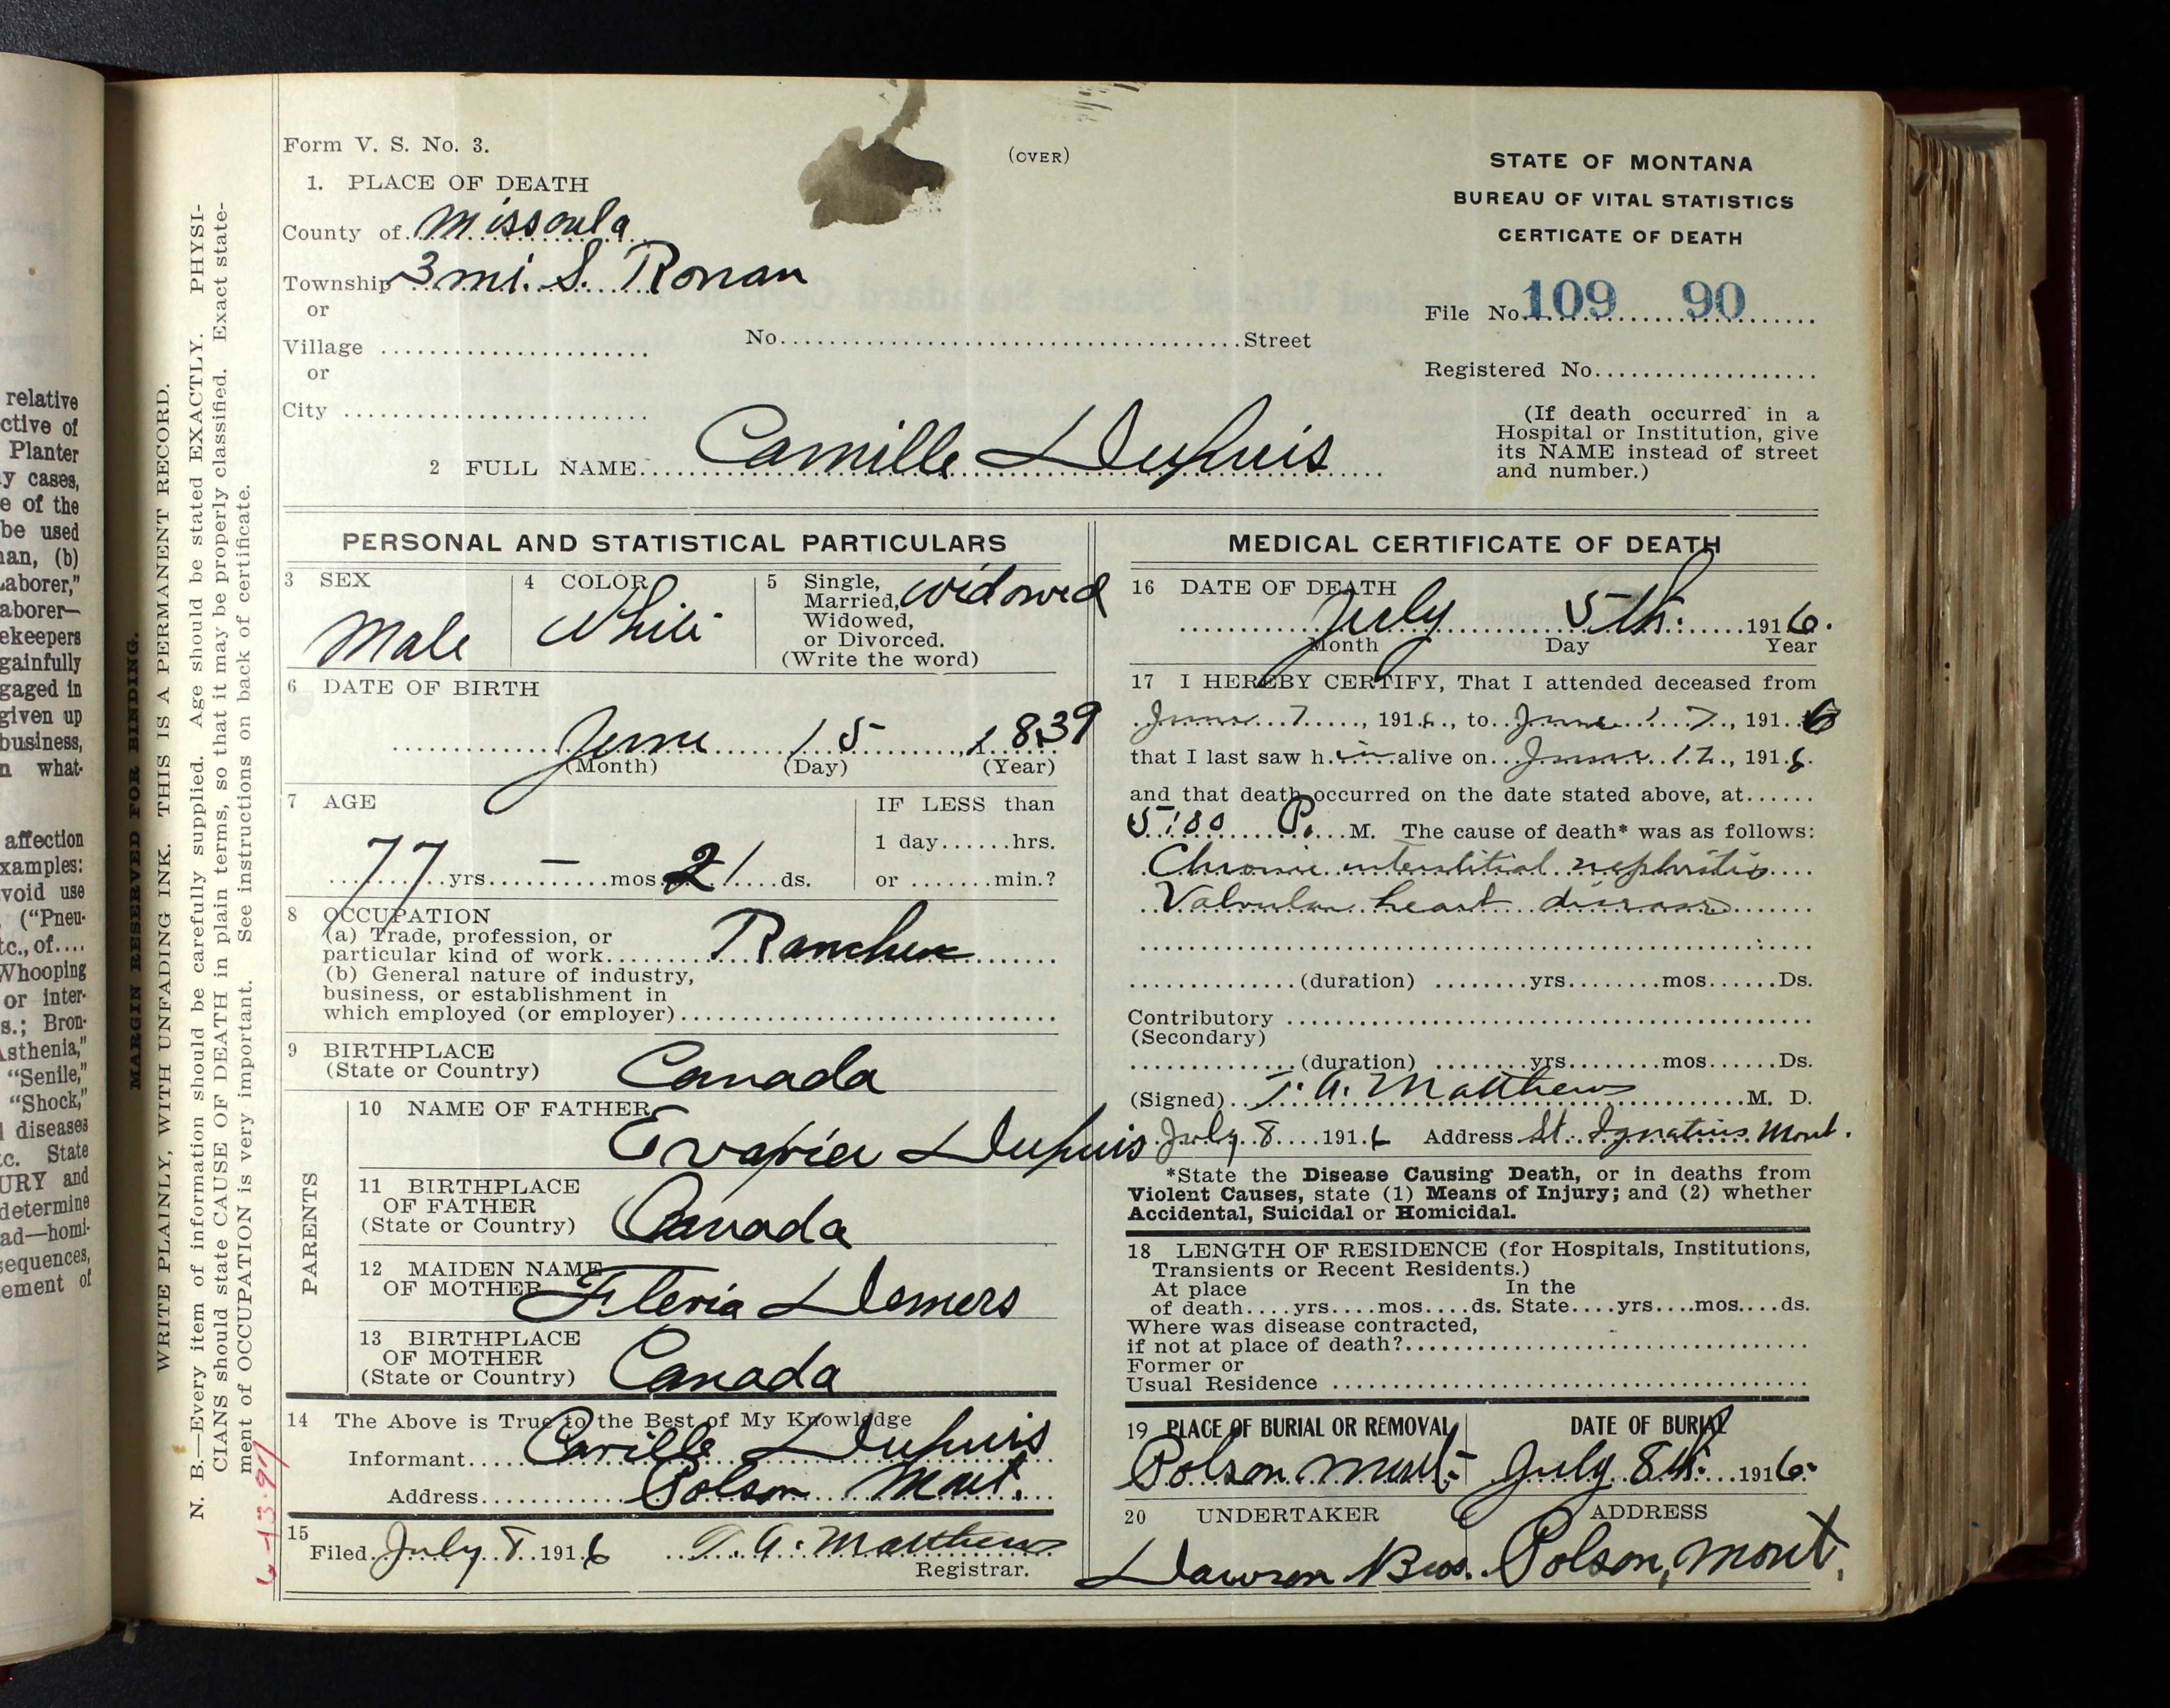 Form V. S. No. 3.
(OVER)
1. PLACE OF DEATH
County of Missoula
Township 3 mi. S. Ronan
or
Village
or
City
No. Street
STATE OF MONTANA
BUREAU OF VITAL STATISTICS
CERTICATE OF DEATH
File No. 109 90
Registered No.
(If death occurred in a
Hospital or Institution, give
its NAME instead of street
and number.)
2 FULL NAME Camille Dupuis
PERSONAL AND STATISTICAL PARTICULARS
3 SEX
Male
4 COLOR
White
5 Single,
Married,
Widowed,
or Divorced.
(Write the word)
widowed
6 DATE OF BIRTH
June 15, 1839
(Month) (Day) (Year)
7 AGE
77 yrs. — mos. 21 ds.
IF LESS than
1 day......hrs.
or .......min.?
8 OCCUPATION
(a) Trade, profession, or
particular kind of work Rancher
(b) General nature of industry,
business, or establishment in
which employed (or employer)
9 BIRTHPLACE
(State or Country) Canada
PARENTS
10 NAME OF FATHER
Dupuis
11 BIRTHPLACE
OF FATHER
(State or Country) Canada
12 MAIDEN NAME
OF MOTHER Demers
13 BIRTHPLACE
OF MOTHER
(State or Country) Canada
14 The Above is True to the Best of My Knowledge
Informant Dupuis
Address Polson Mont.
15
Filed July 8 1916 T. A. Matthews
Registrar.
MEDICAL CERTIFICATE OF DEATH
16 DATE OF DEATH
July 5th. 1916.
Month Day Year
17 I HEREBY CERTIFY, That I attended deceased from
June 7, 1916, to June 17, 1916
that I last saw him alive on June 17, 1916.
and that death occurred on the date stated above, at
P. M. The cause of death* was as follows:
Chronic interstitial nephritis
Valvular heart disease
(duration) ........yrs........mos......Ds.
Contributory
(Secondary)
(duration) ........yrs........mos......Ds.
(Signed) T. A. Matthews M. D.
July 8 1916 Address St. Ignatius Mont.
*State the Disease Causing Death, or in deaths from
Violent Causes, state (1) Means of Injury; and (2) whether
Accidental, Suicidal or Homicidal.
18 LENGTH OF RESIDENCE (for Hospitals, Institutions,
Transients or Recent Residents.)
At place In the
of death....yrs....mos....ds. State....yrs....mos....ds.
Where was disease contracted,
if not at place of death?
Former or
Usual Residence
19 PLACE OF BURIAL OR REMOVAL
Polson Mont.
DATE OF BURIAL
July 8th. 1916.
20 UNDERTAKER
Dawson Bros.
ADDRESS
Polson, Mont.
MARGIN RESERVED FOR BINDING.
WRITE PLAINLY, WITH UNFADING INK. THIS IS A PERMANENT RECORD.
N. B.—Every item of information should be carefully supplied. Age should be stated EXACTLY. PHYSI-
CIANS should state CAUSE OF DEATH in plain terms, so that it may be properly classified. Exact state-
ment of OCCUPATION is very important. See instructions on back of certificate.
relative
ctive of
Planter
y cases,
e of the
be used
nan, (b)
Laborer,"
aborer—
ekeepers
gainfully
gaged in
given up
business,
n what-
affection
xamples:
void use
("Pneu-
tc., of....
Whooping
or inter-
s.; Bron-
Asthenia,"
"Senile,"
"Shock,"
l diseases
tc. State
URY and
determine
ad—homi-
sequences,
ement of